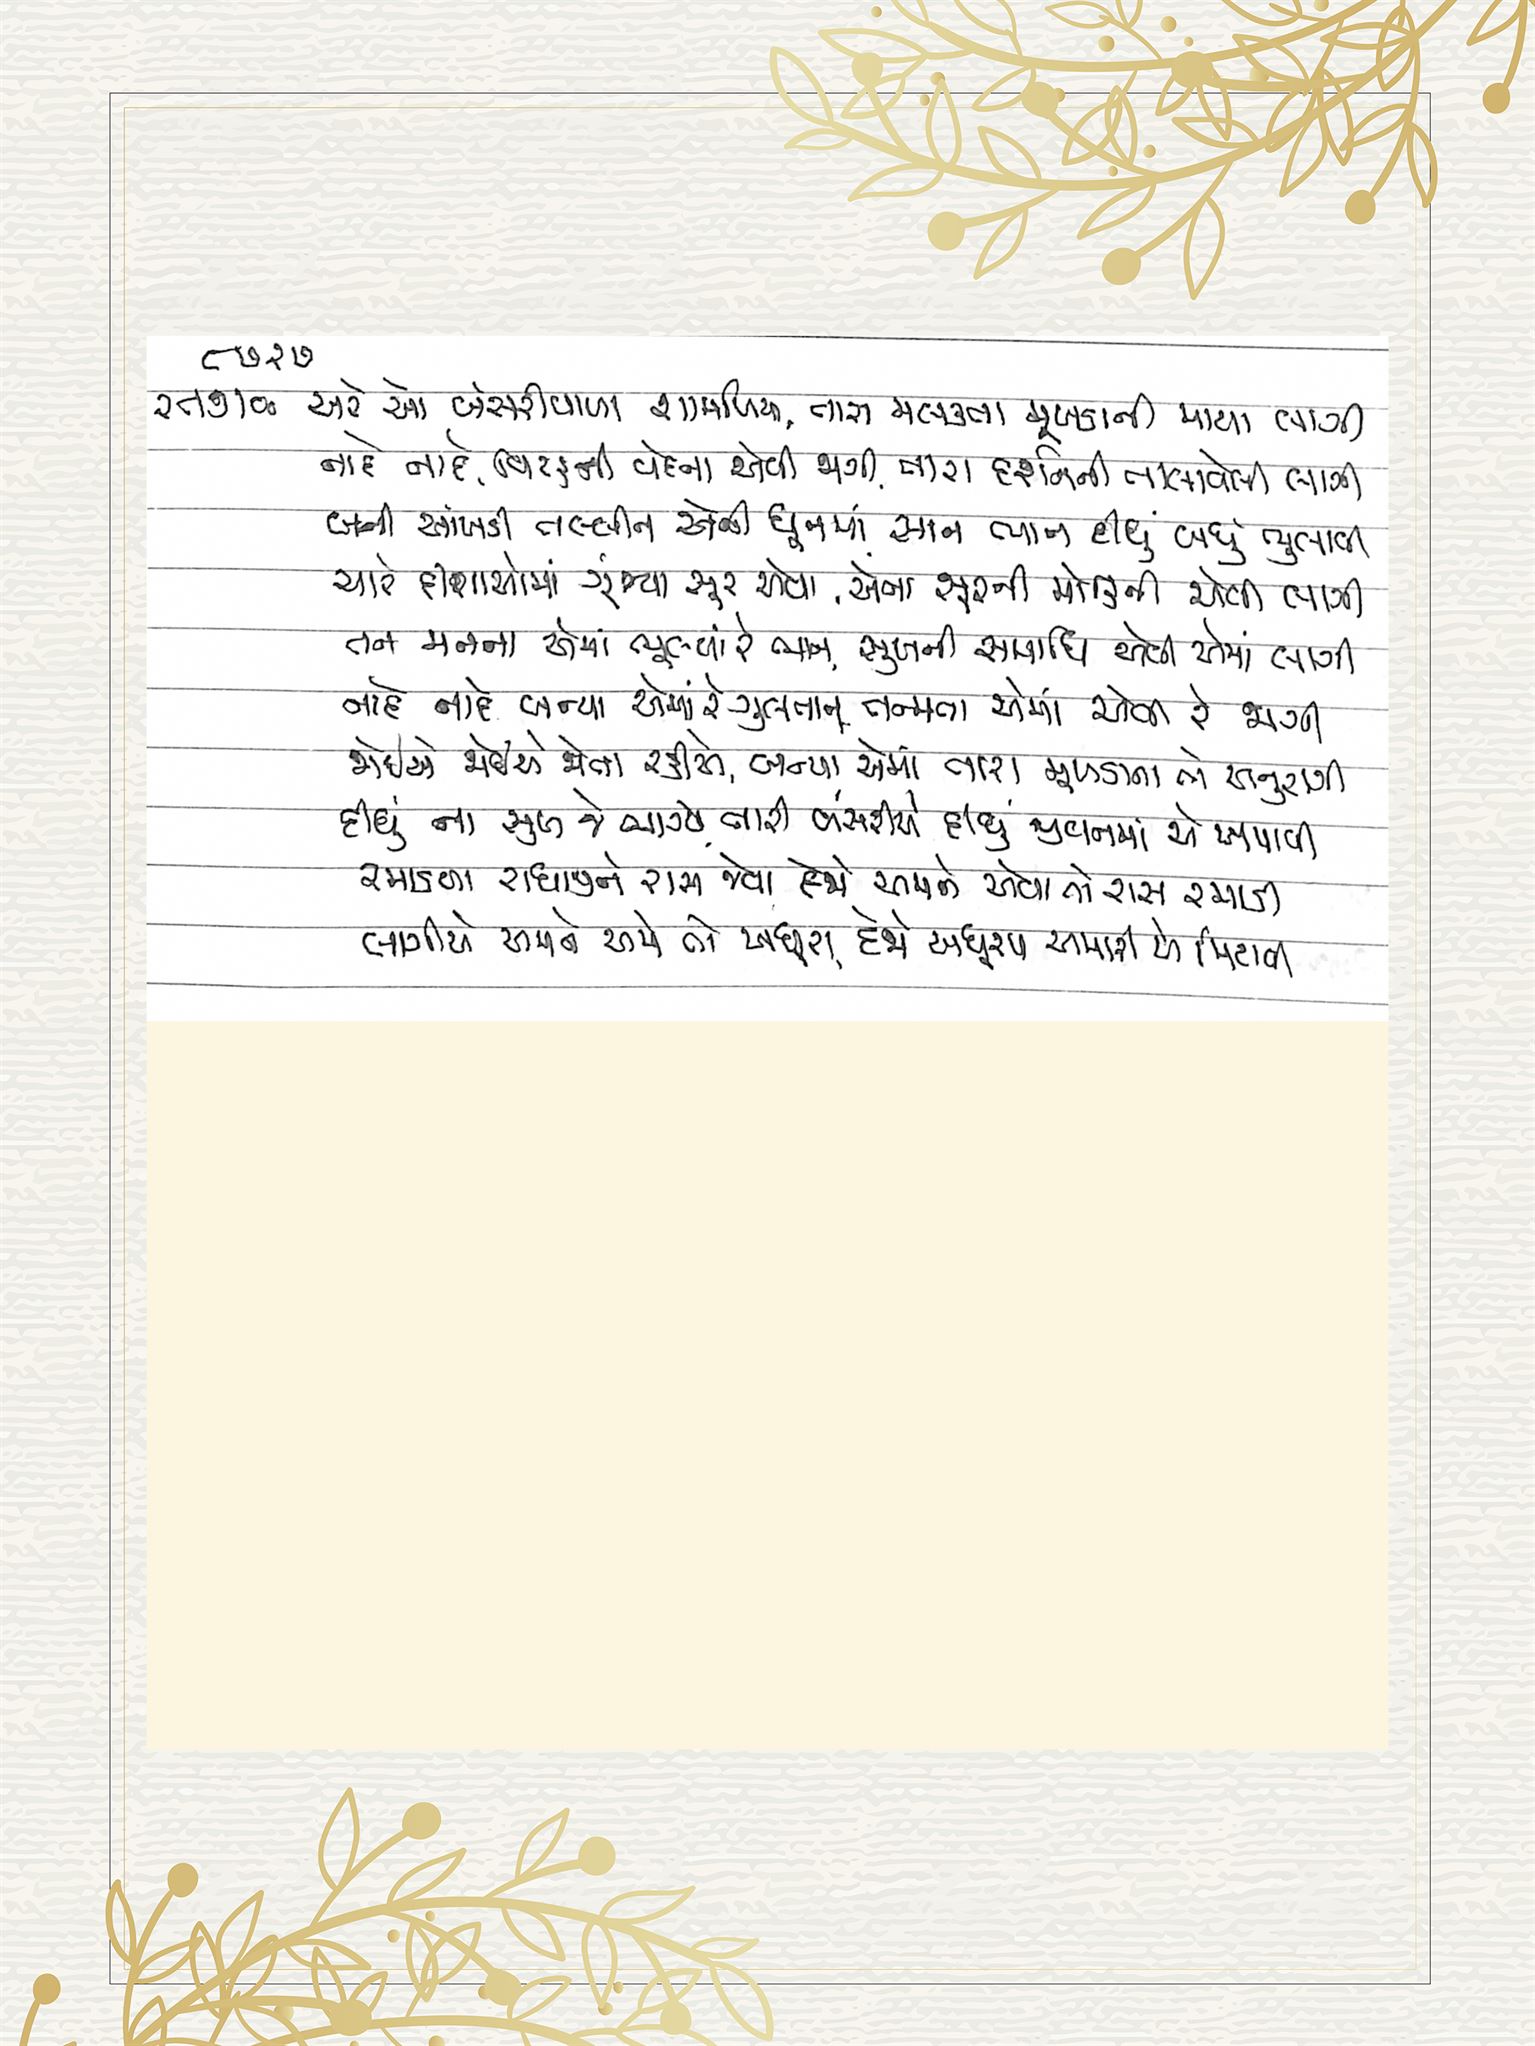 ૮૭૨૭
અરે ઓ બંસરીવાળા શામળિયા, તારા મલકતા મૂખડાની માયા લાગી
નાદે નાદે, વિરહની વેદના એવી જાગી, તારા દર્શનની તાલાવેલી લાગી
બની આંખડી તલ્લીન એવી ધૂનમાં, સાન ભાન દીધું બધું ભુલાવી
ચારે દીશાઓમાં ગૂંજ્યા સૂર એવા, એના સૂરની મોહિની એવી લાગી
તન મનના એમાં ભૂલ્યાં રે ભાન, સુખની સમાધિ એવી એમાં લાગી
નાદે નાદે બન્યા એમાં રે ગુલતાન, તન્મતા એમાં એવી રે જાગી
જોઈએ જોઈએ જોતા રહીએ, બન્યા એમાં તારા મૂખડાના તો અનુરાગી
દીધું ના સુખ જે ભાગ્યે, તારી બંસરીએ દીધું જીવનમાં એ અપાવી
રમાડયા રાધાજીને રાસ જેવા, દેજે અમને એવા તો રાસ રમાડી
લાગીએ અમને અમે તો અધૂરા, દેજે અધૂરપ અમારી એ મિટાવી